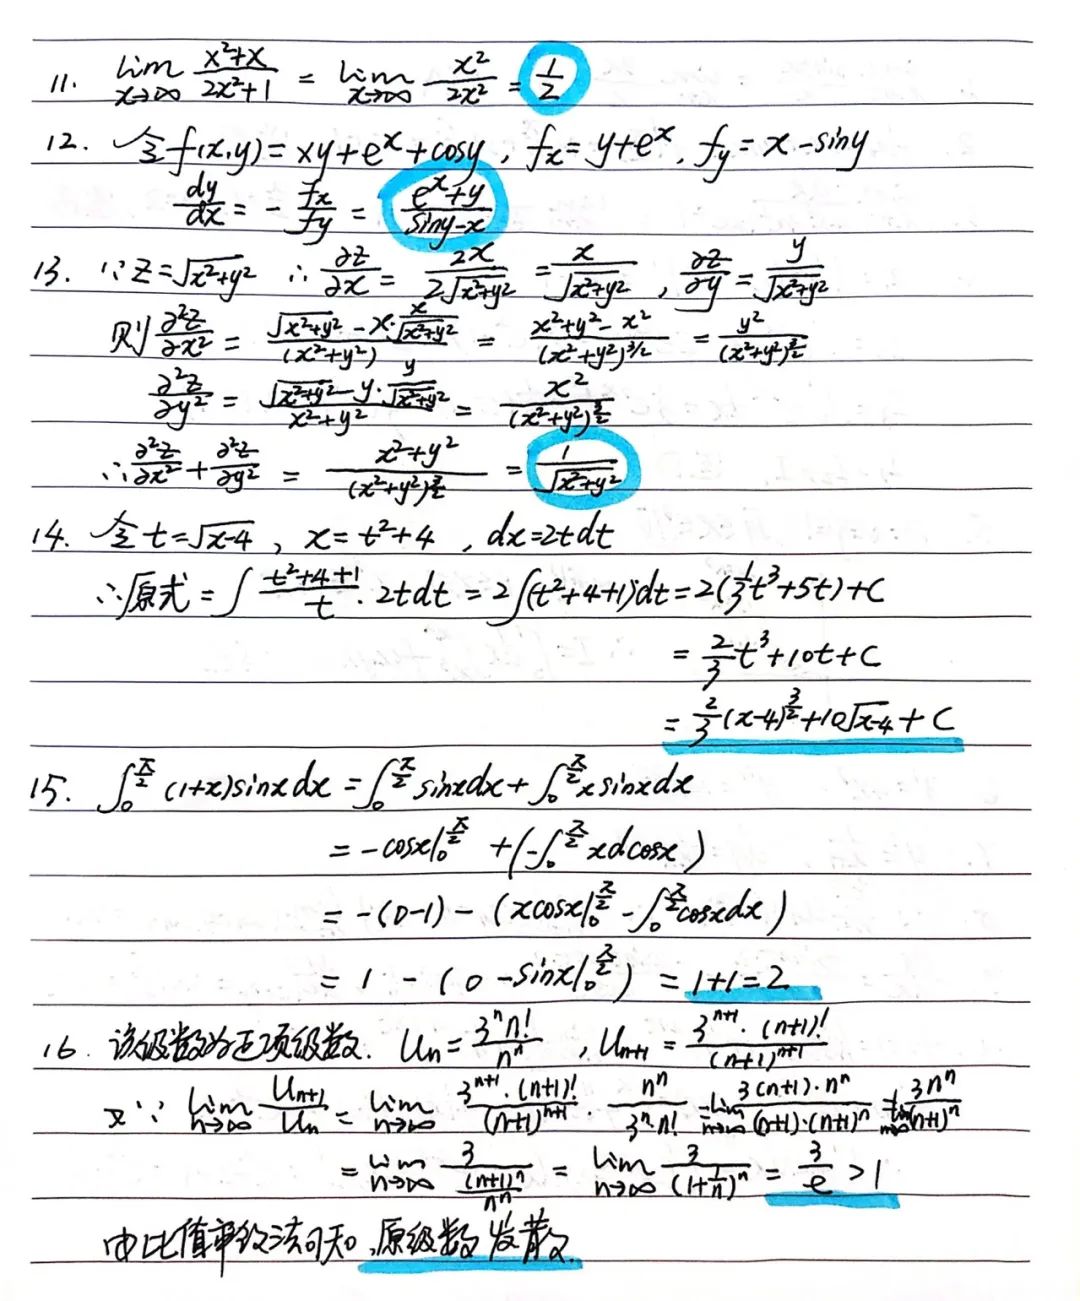 11. lim_{x→∞} (x²+x)/(2x²+1) = lim_{x→∞} x²/(2x²) = 1/2
12. 令f(x,y)=xy+e^x+cosy, f_x=y+e^x, f_y=x-siny
dy/dx = -f_x/f_y = (e^x+y)/(siny-x)
13. ∵z=√(x²+y²) ∴ ∂z/∂x = 2x/(2√(x²+y²)) = x/√(x²+y²), ∂z/∂y = y/√(x²+y²)
则 ∂²z/∂x² = (√(x²+y²) - x·x/√(x²+y²))/(x²+y²) = (x²+y²-x²)/(x²+y²)^{3/2} = y²/(x²+y²)^{3/2}
∂²z/∂y² = (√(x²+y²) - y·y/√(x²+y²))/(x²+y²) = x²/(x²+y²)^{3/2}
∴ ∂²z/∂x² + ∂²z/∂y² = (x²+y²)/(x²+y²)^{3/2} = 1/√(x²+y²)
14. 令t=√(x-4), x=t²+4, dx=2tdt
∴原式=∫(t²+4+1)/t·2tdt=2∫(t²+4+1)dt=2(1/3t³+5t)+C
=2/3t³+10t+C
=2/3(x-4)^{3/2}+10√(x-4)+C
15. ∫_0^{π/2}(1+x)sinxdx=∫_0^{π/2}sinxdx+∫_0^{π/2}xsinxdx
=-cosx|_0^{π/2}+(-∫_0^{π/2}xdcosx)
=-(0-1)-(xcosx|_0^{π/2}-∫_0^{π/2}cosxdx)
=1-(0-sinx|_0^{π/2})=1+1=2
16. 该级数为正项级数. U_n=3^n n!/n^n, U_{n+1}=3^{n+1}·(n+1)!/(n+1)^{n+1}
又∵ lim_{n→∞} U_{n+1}/U_n = lim_{n→∞} 3^{n+1}·(n+1)!/(n+1)^{n+1} · n^n/(3^n n!) = lim_{n→∞} 3(n+1)·n^n/((n+1)·(n+1)^n) = lim_{n→∞} 3n^n/(n+1)^n
=lim_{n→∞} 3/((n+1)^n/n^n) = lim_{n→∞} 3/(1+1/n)^n = 3/e >1
由比值审敛法可知,原级数发散.